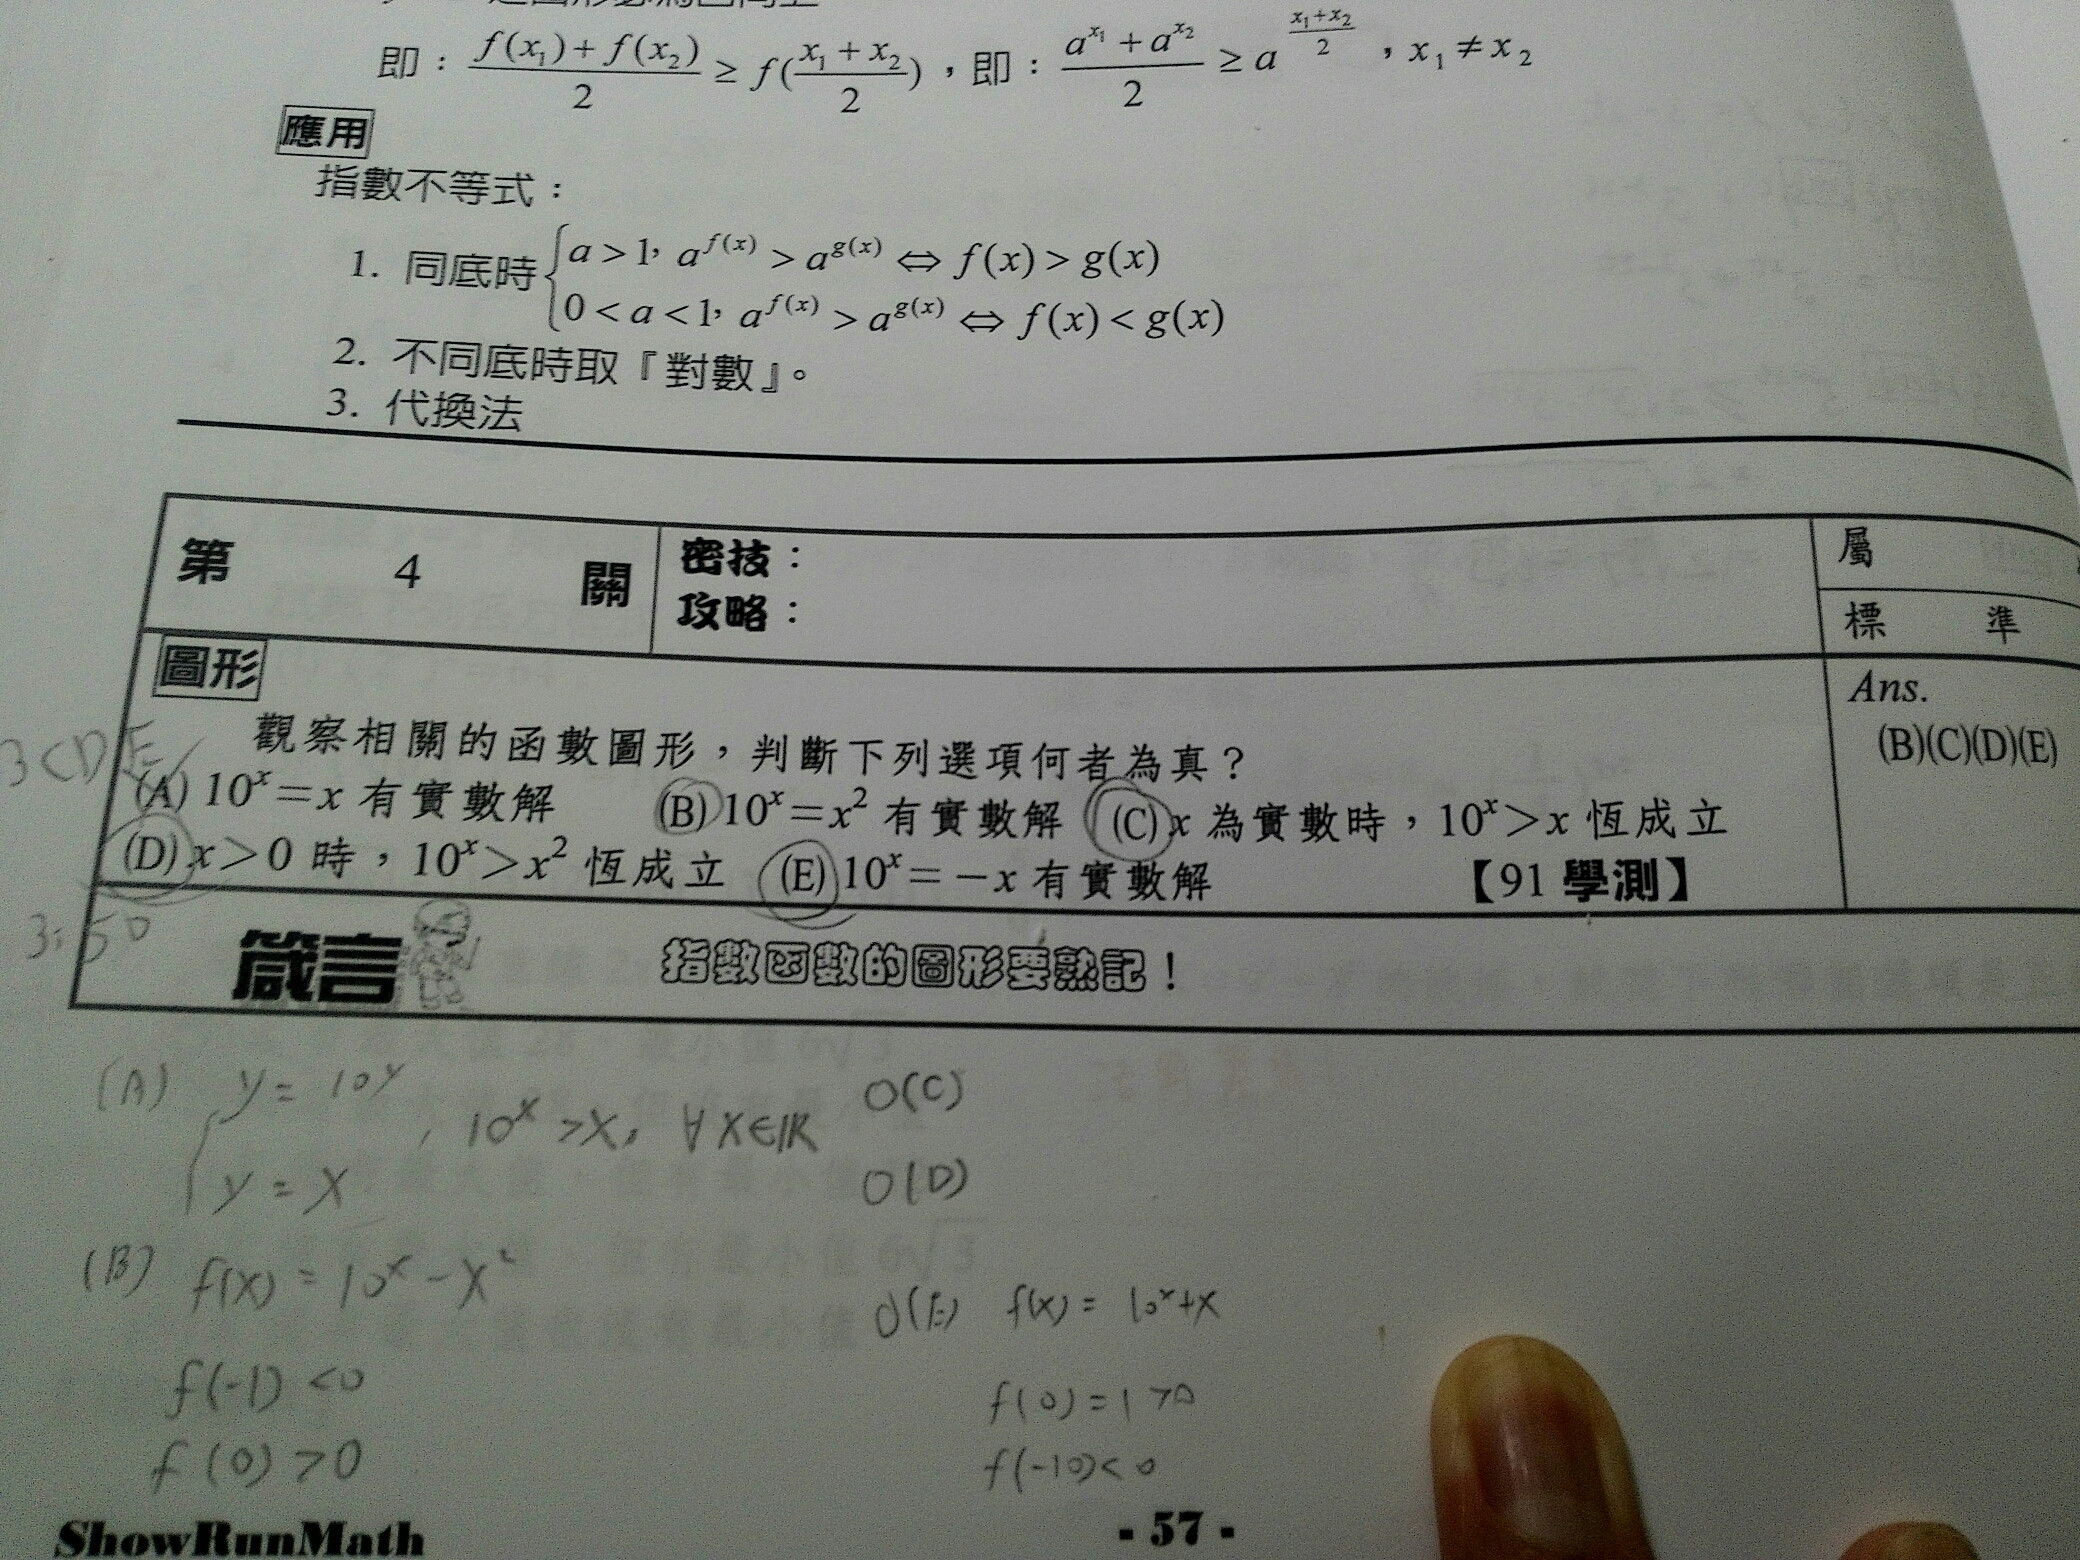 即：f(x₁)+f(x₂)/2 ≥ f(x₁+x₂/2)，即：a^x₁+a^x₂/2 ≥ a^(x₁+x₂/2)，x₁≠x₂
應用
指數不等式：
1. 同底時{a>1, a^f(x)>a^g(x)⇔f(x)>g(x)
0<a<1, a^f(x)>a^g(x)⇔f(x)<g(x)
2. 不同底時取『對數』。
3. 代換法
第 4 關
密技：
攻略：
屬
標 準
圖形
觀察相關的函數圖形，判斷下列選項何者為真？
(A) 10^x=x 有實數解 (B) 10^x=x² 有實數解 (C) x 為實數時，10^x>x 恆成立
(D) x>0 時，10^x>x² 恆成立 (E) 10^x=−x 有實數解 【91 學測】
Ans.
(B)(C)(D)(E)
3:50
箴言 指數函數的圖形要熟記！
(A) y=10^x
y=x , 10^x>x, ∀x∈ℝ
O(C)
O(D)
(B) f(x)=10^x−x²
f(-1)<0
f(0)>0
O(E) f(x)=10^x+x
f(0)=1>0
f(-10)<0
ShowRunMath
- 57 -